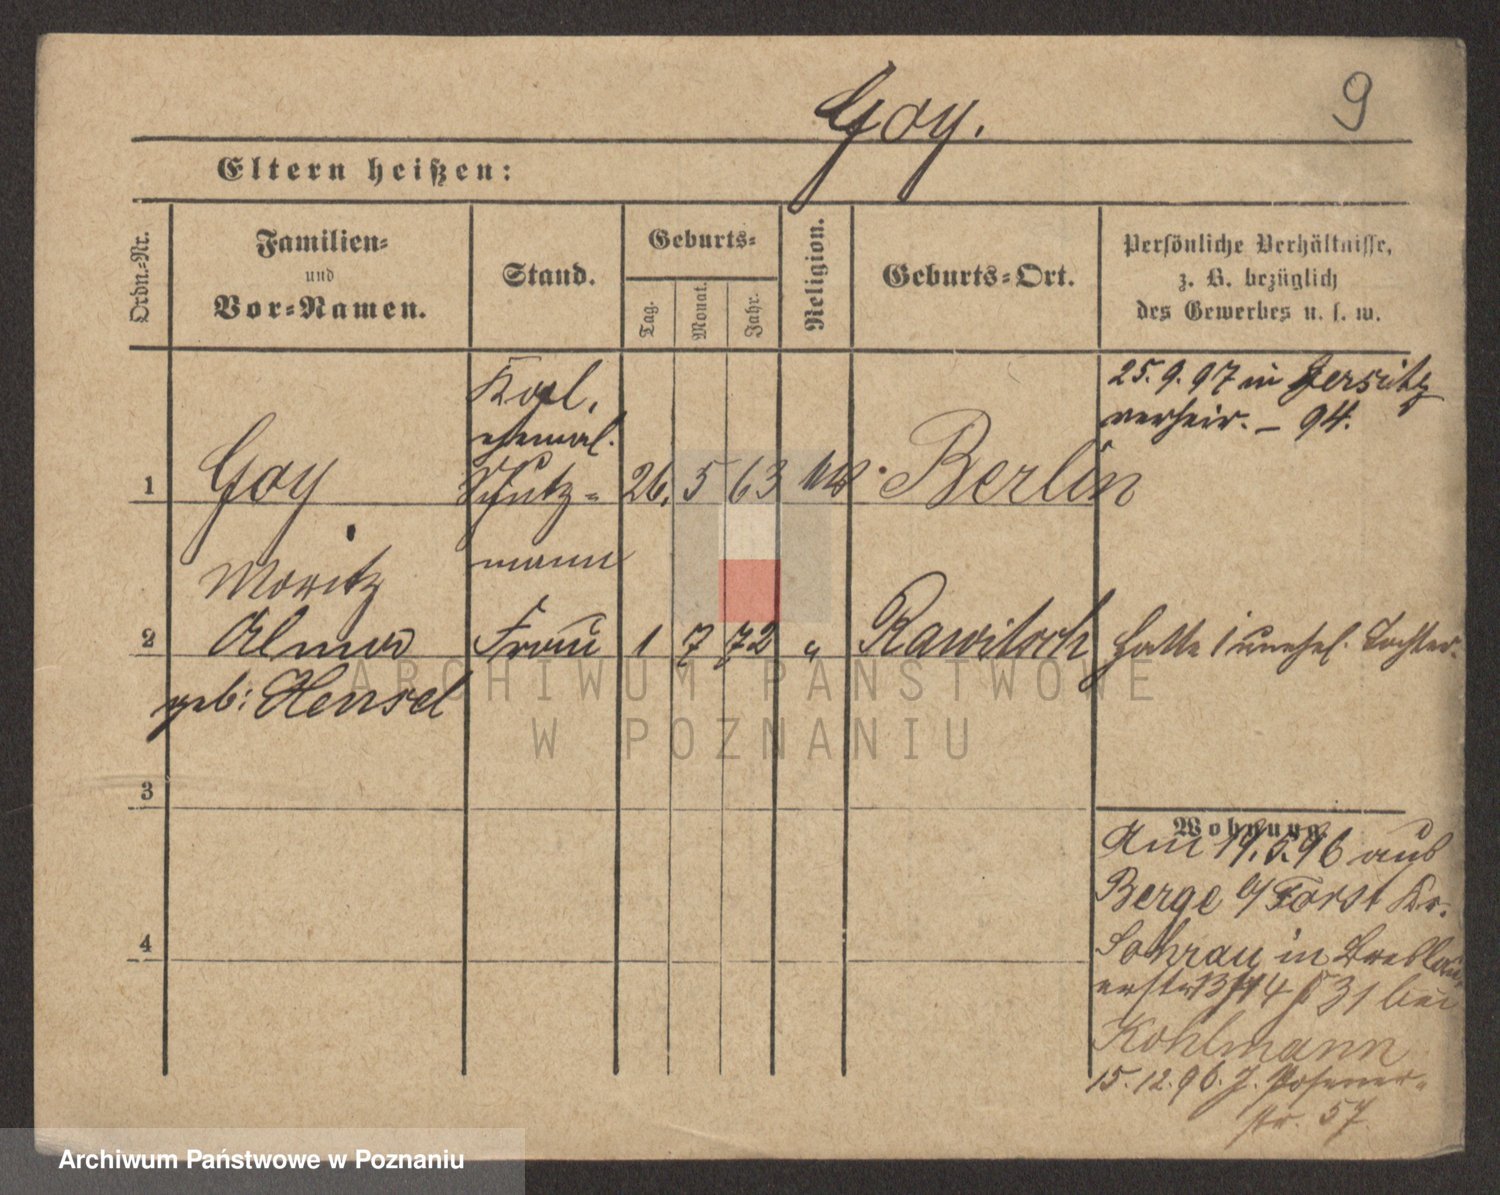 Goy.
9
Eltern heißen:
Ordn.-Nr.
Familien-
und
Vor-Namen.
Stand.
Geburts-
Tag.
Monat.
Jahr.
Religion.
Geburts-Ort.
Persönliche Verhältnisse,
z. B. bezüglich
des Gewerbes u. s. w.
25.9.97 in Jersitz
verheir. – 94.
1
Goy
Moritz
ehemal.
Schutz-
mann
26. 5 63
Berlin
2
Alma
geb: Hensel
Frau
1 7 72 "
Rawitsch
Hatte 1 unehel. Tochter.
3
4
Wohnung
Am 19.5.96 aus
Berge b/ Forst Kr.
Sohrau in Breslau
31 bei
Kohlmann
15.12.96. J. Posener-
str. 57
ARCHIWUM PAŃSTWOWE
W POZNANIU
Archiwum Państwowe w Poznaniu